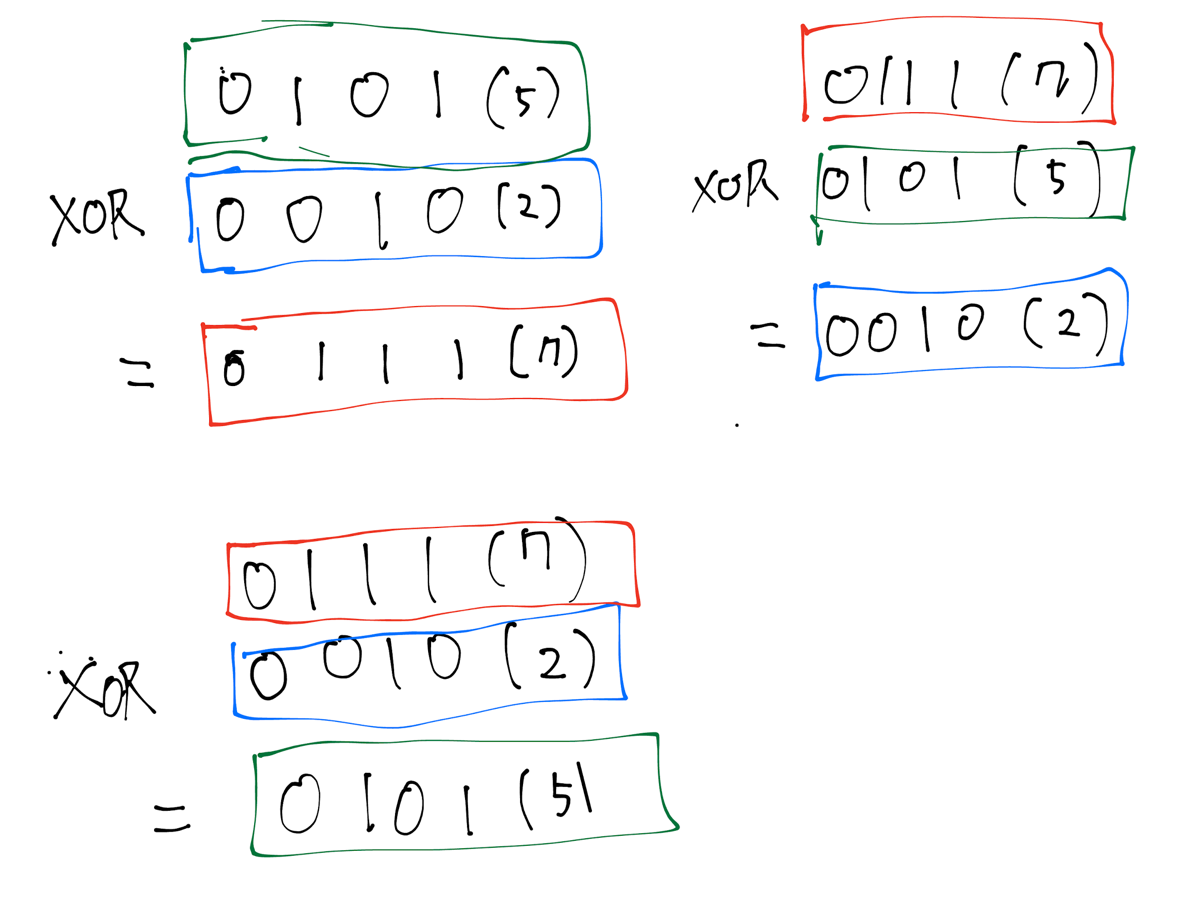 0 1 0 1 (5)
XOR 0 0 1 0 (2)
= 0 1 1 1 (7)
0111 (7)
XOR 0101 (5)
= 0010 (2)
0 1 1 1 (7)
XOR 0 0 1 0 (2)
= 0 1 0 1 (5)